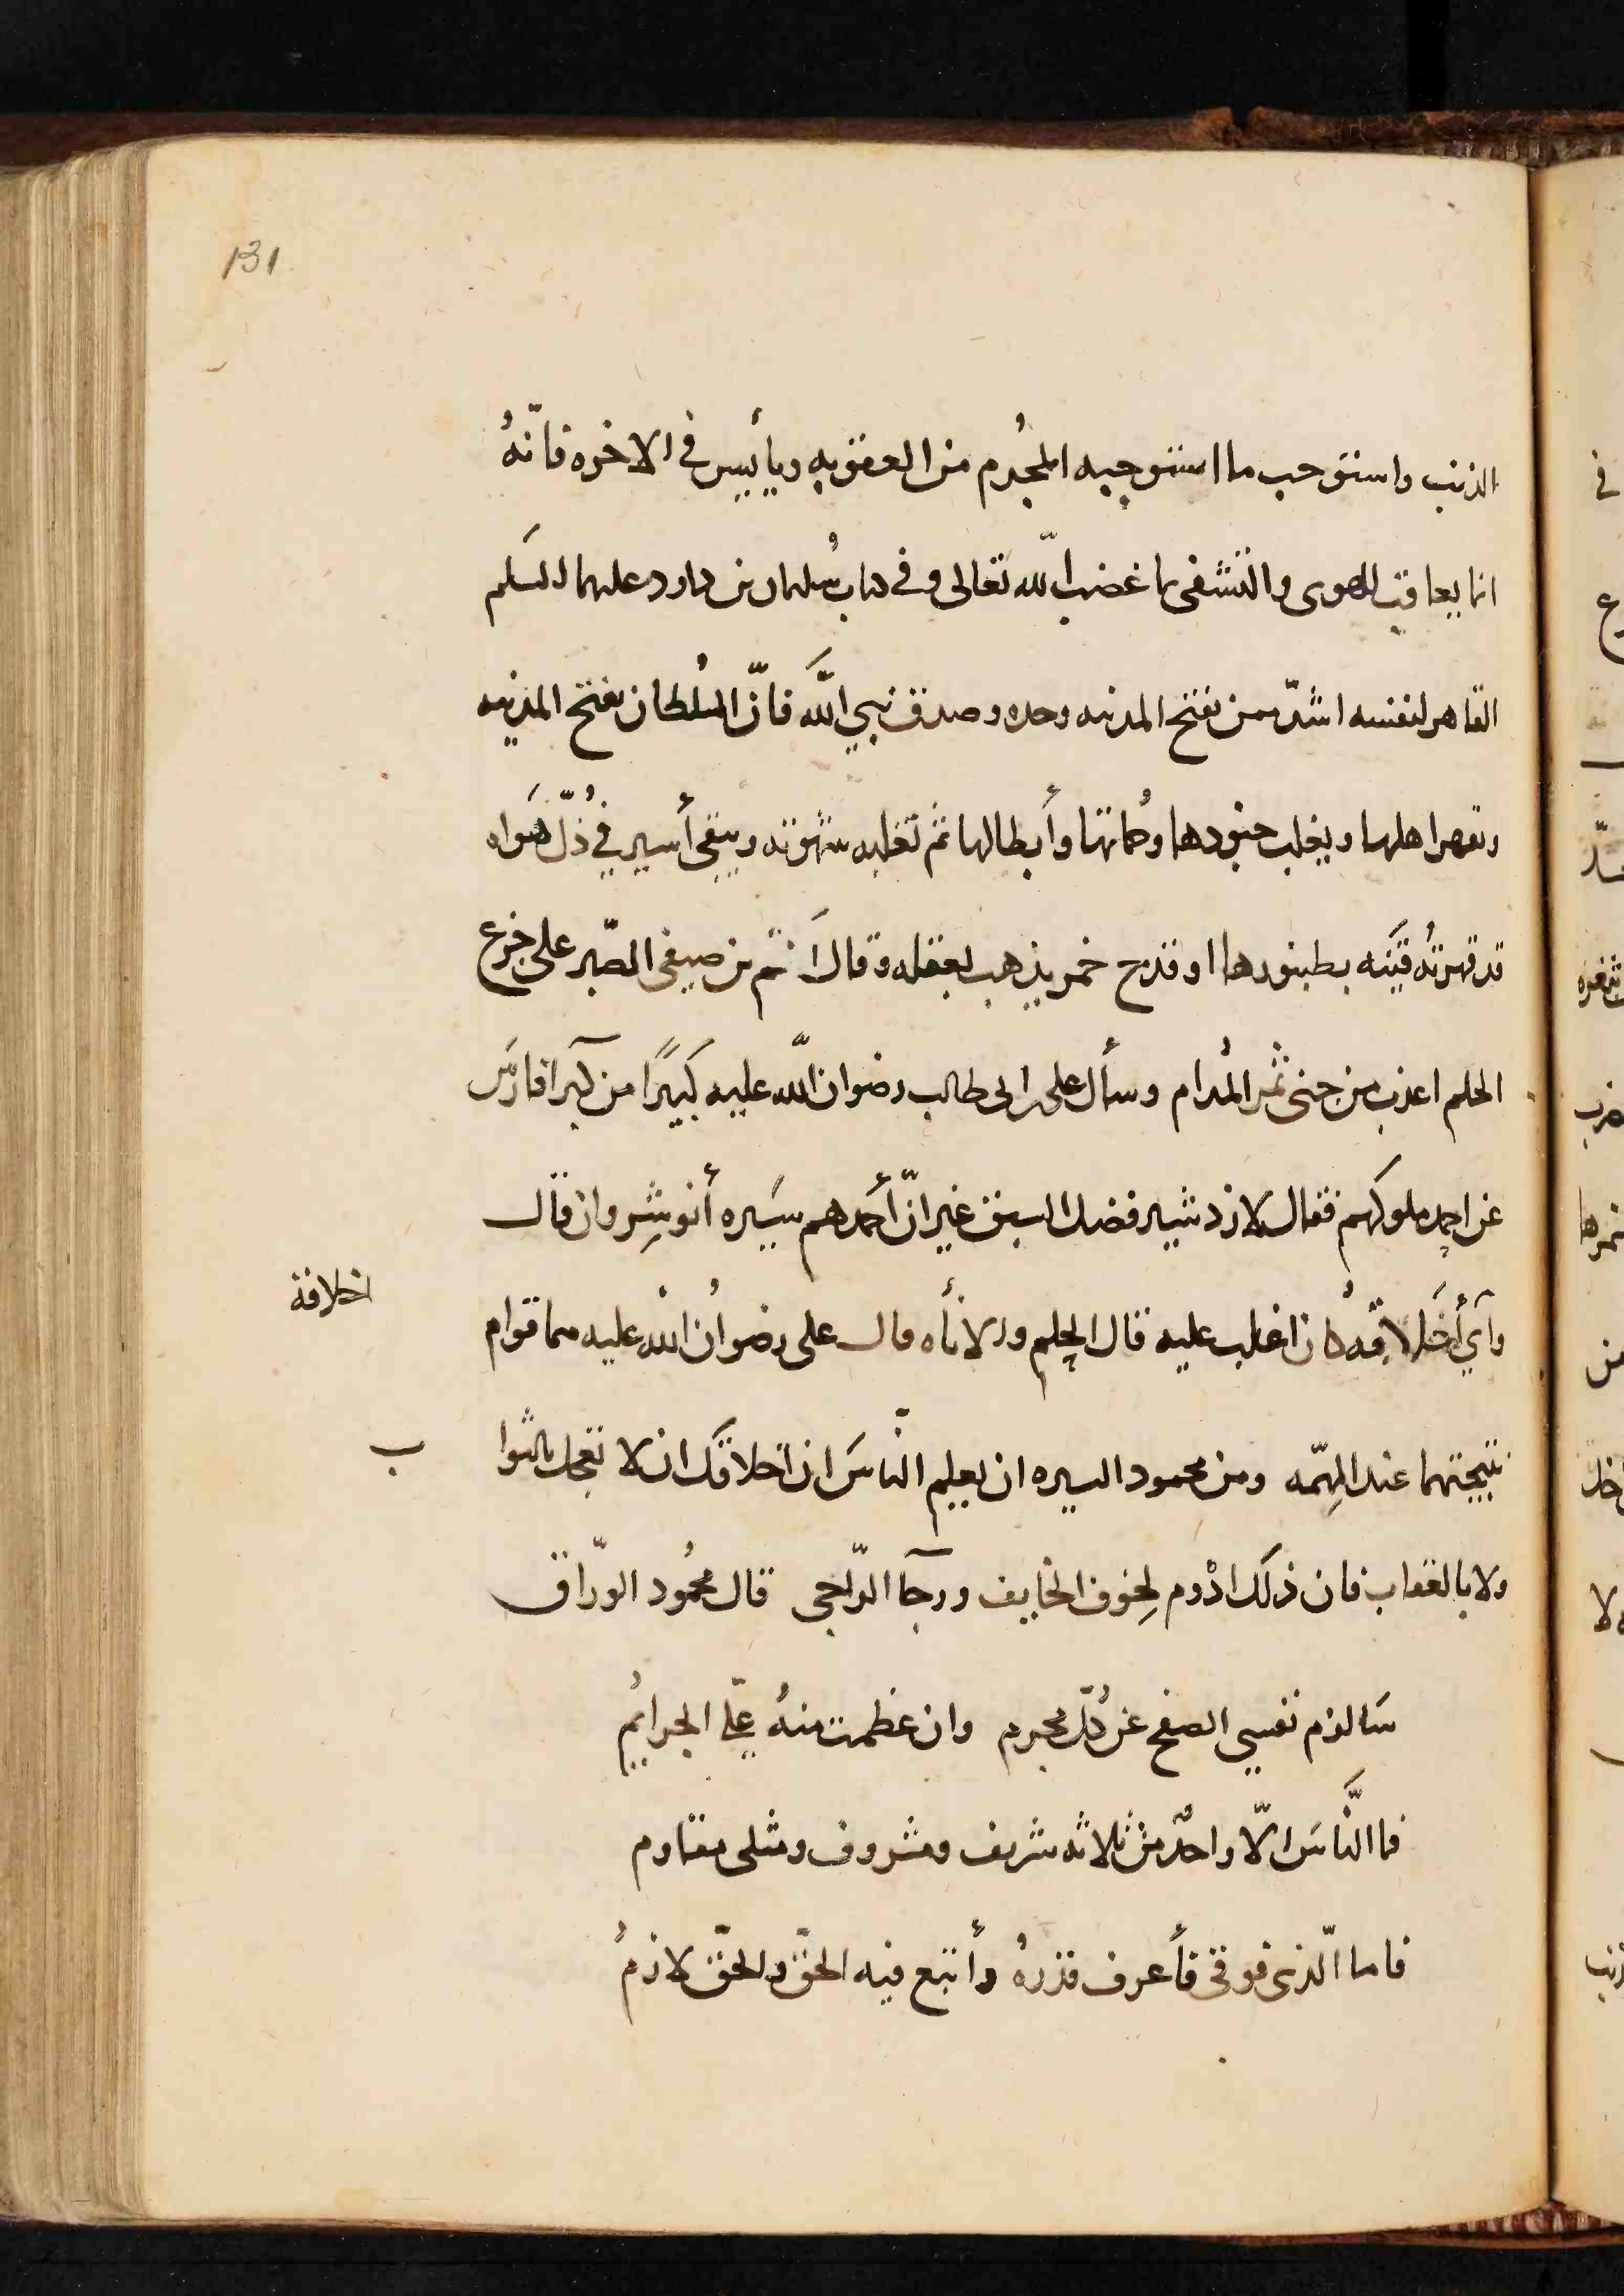 131
الذنب واستوجب ما استوجبه المجُرم من العقوبه ويأيس في الاخره فانّهُ
انما يعاقب للهوى والتشفى بما غضب اللّه تعالى وفي كتاب سُليمان بن داود عليهما السَلم
القاهر لنفسه اشدّ ممن يفتح المدينه وحده وصدق نبي اللَّه فانّ السُلطان يفتح المدينه
ويقهر اهلها ويغلب جنودها وحُماتها وأبطالها ثم تغلبه شهوته ويبقى أسير في ذُلّ هَواه
قد قهرتهُ قَينَه بطنبورها او قدح خمر يذهب بعقله وقالَ اكثم بن صيفى الصّبر على جرع
الحلم اعذب من جنى ثمر المُدام وسأل على ابن ابى طالب رضوان اللّه عليه كَبيرًا من كبرآ فارَس
عن احمد ملوكهم فقال لازدشير فضل السبق غير انّ أحمَدهم سَيره أنوشِروان قال
وآي أخَلاقهُ كان اغلب عليه قال الحِلم والانأه قال على رضوُان اللّه عليه هما قوام
اخلاقة
نتيجتهما عند الهِمّه ومن محمود السيره ان يعلم النّاسَ ان اخلاقَك ان لا تعجل بالثوا
ب
ولا بالعقاب فان ذلك ادْوم لِخوف الخايف ورجآ الرّاجى قال محُمود الورّاق
سَالزم نفسي الصفح عن كُلّ مجرم وان عظمت منهُ علىّ الجرايُم
فما النَّاسَ الاّ واحدٌ من ثلاثه شريف ومشروف ومثلى مقاوم
فاما الّذى فوقى فأعرف قدرهُ وأتبع فيه الحقّ والحقّ لازمُ